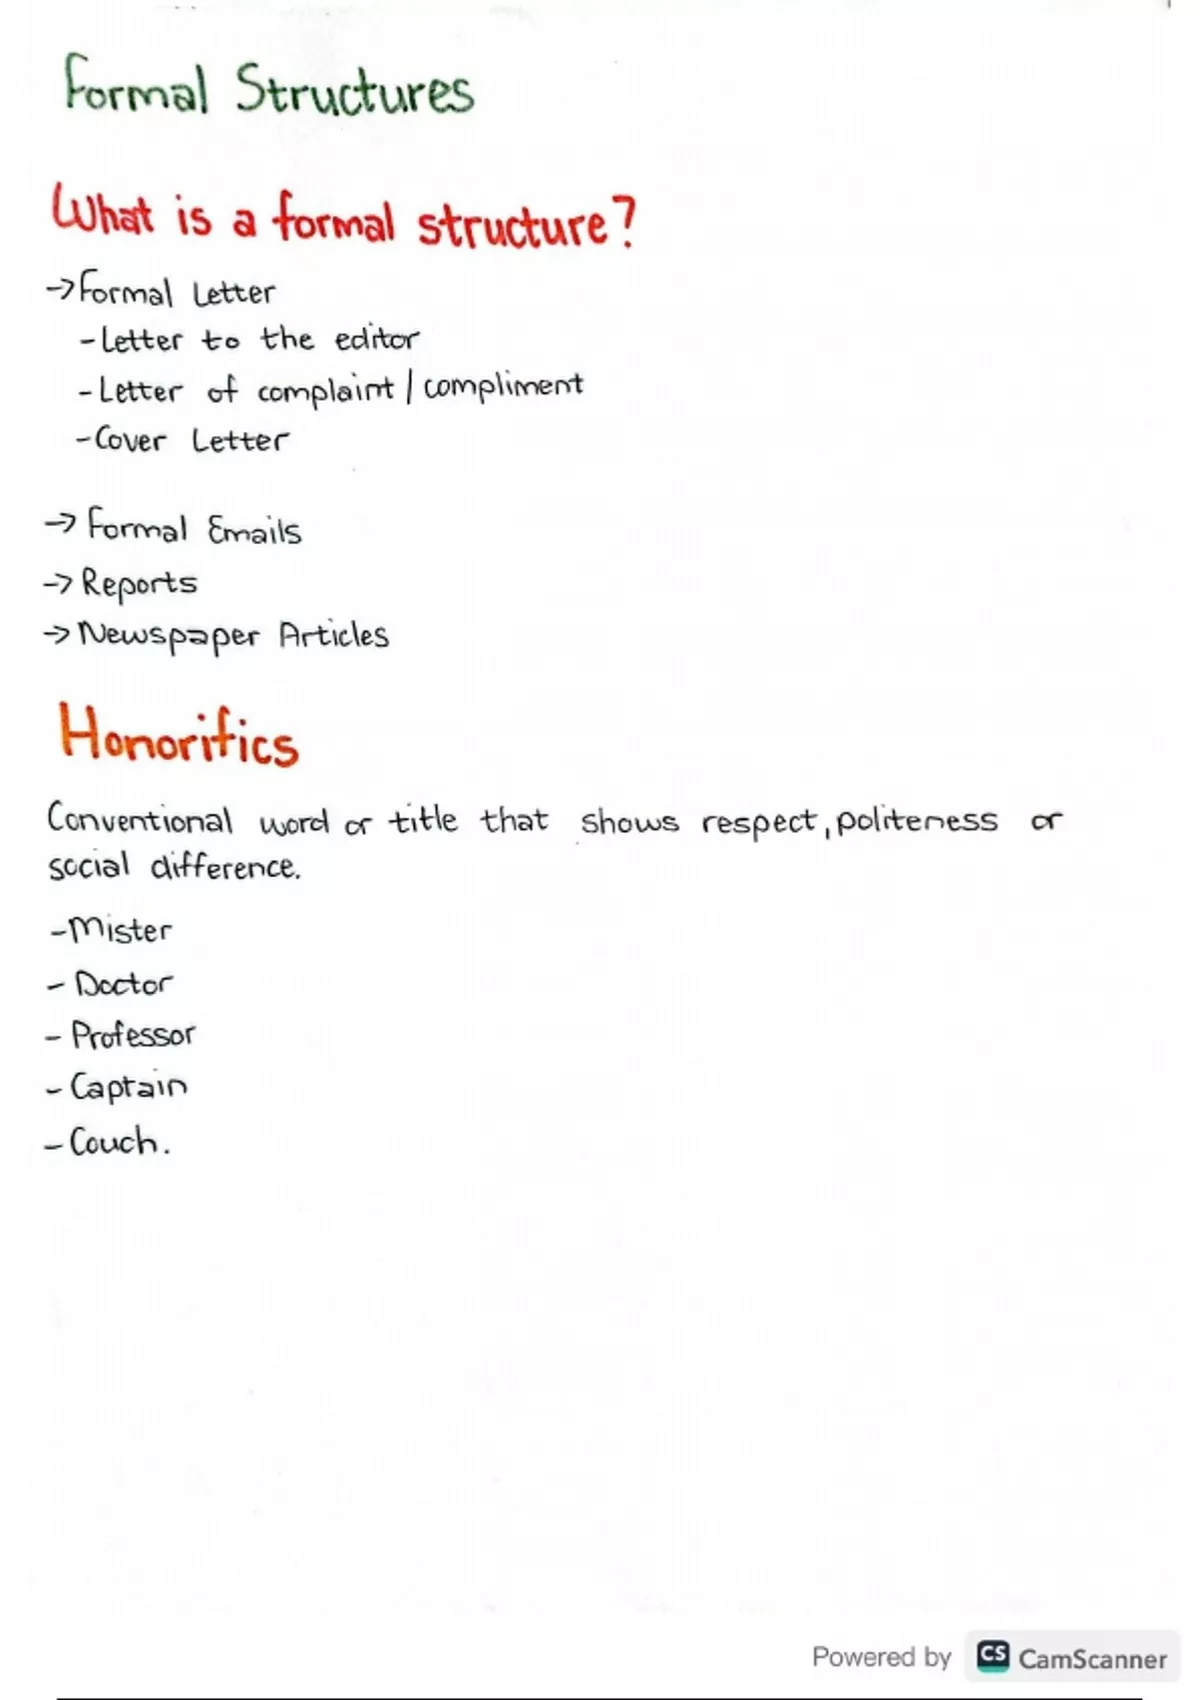 Formal Structures
What is a formal structure?
→ Formal Letter
- Letter to the editor
- Letter of complaint / compliment
- Cover Letter
→ Formal Emails
→ Reports
→ Newspaper Articles
Honorifics
Conventional word or title that shows respect, politeness or
social difference.
- Mister
- Doctor
- Professor
- Captain
- Couch.
Powered by CS CamScanner